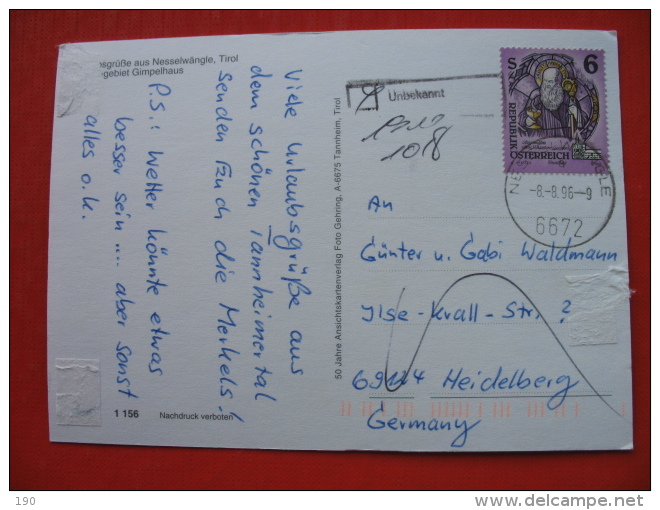 sgrüße aus Nesselwängle, Tirol
gebiet Gimpelhaus
Viele Urlaubsgrüße aus
dem schönen Tannheimertal
senden Euch die Merkels!
P.S.: Wetter könnte etwas
besser sein .... aber sonst
alles o.k.
1 156 Nachdruck verboten
50 Jahre Ansichtskartenverlag Foto Gehring, A-6675 Tannheim, Tirol
Unbekannt
10/8
S 6
REPUBLIK
ÖSTERREICH
-8.-8.96-9
6672
An
Günter u. Gabi Waldmann
Ilse-Krall-Str. ?
Heidelberg
Germany
190
delcampe.net